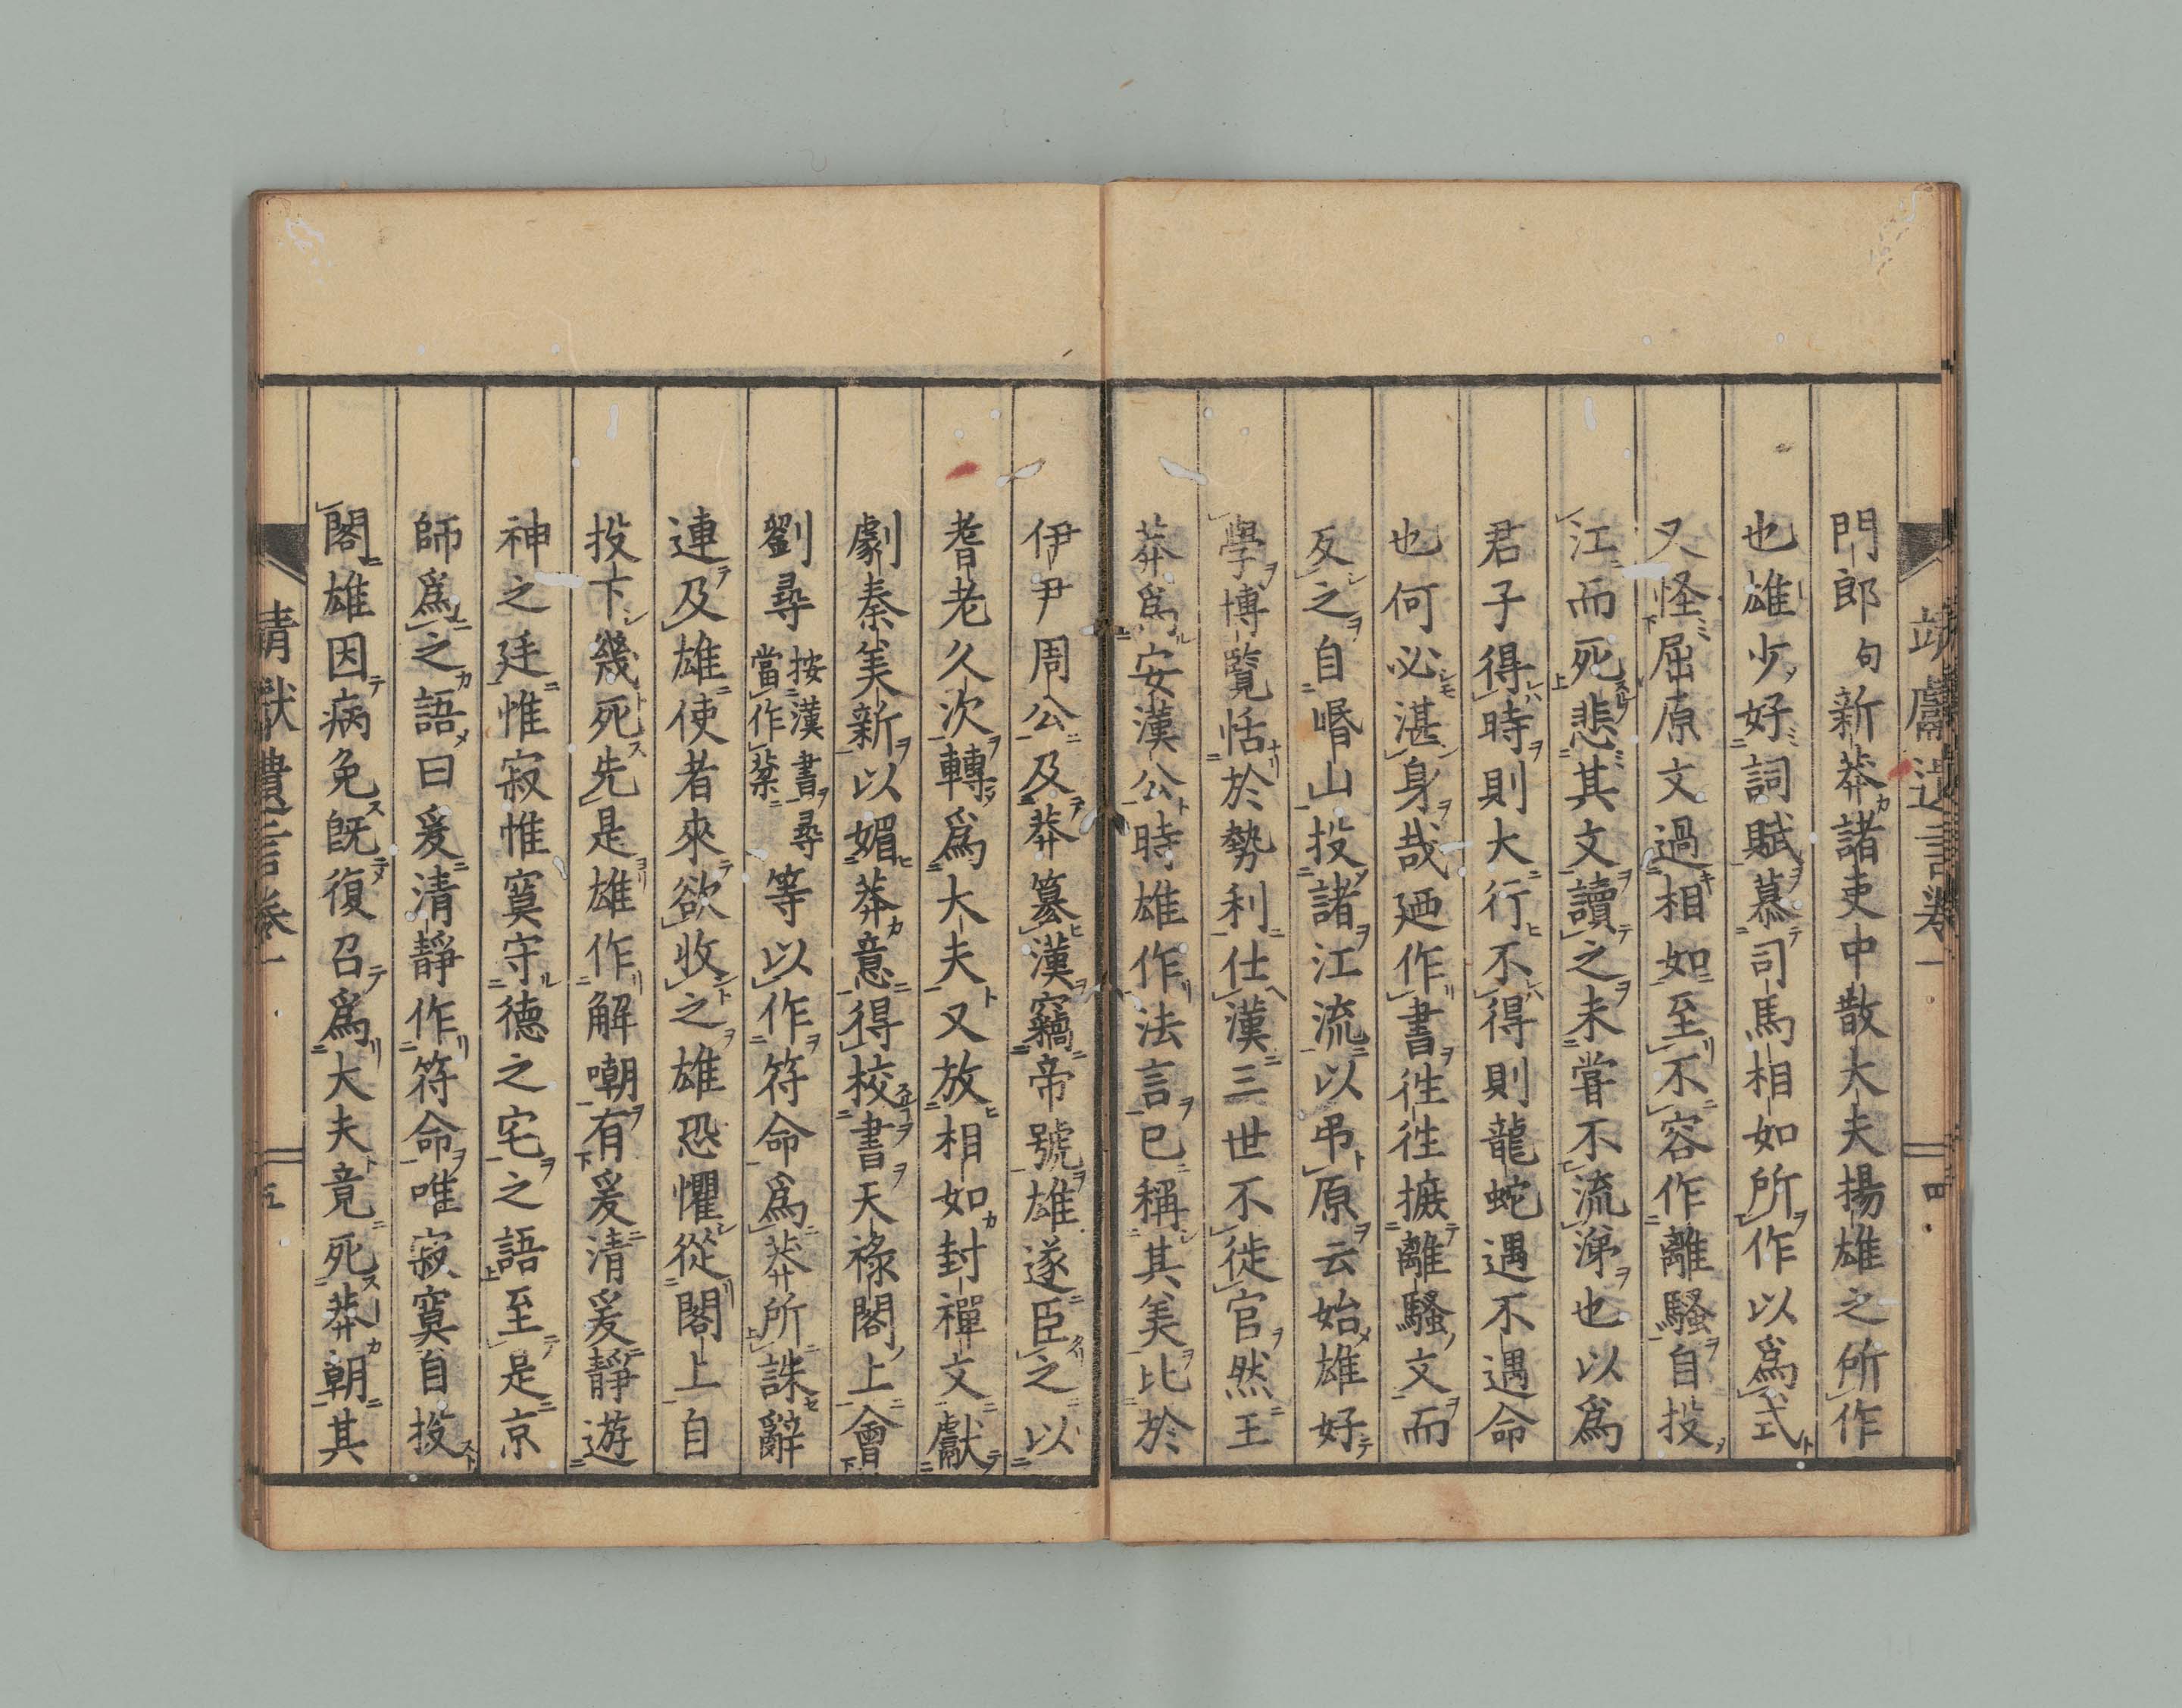 靖獻遺言卷一
四
門郎句新莽諸吏中散大夫揚雄之所作
也雄少好詞賦慕司馬相如所作以爲式
又怪屈原文過相如至不容作離騷自投
江而死悲其文讀之未嘗不流涕也以爲
君子得時則大行不得則龍蛇遇不遇命
也何必湛身哉廼作書徃徃摭離騷文而
反之自㟭山投諸江流以弔原云始雄好
學博覽恬於勢利仕漢三世不徙官然王
莽爲安漢公時雄作法言已稱其美比於
伊尹周公及莽簒漢竊帝號雄遂臣之以
耆老久次轉爲大夫又放相如封禪文獻
劇秦美新以媚莽意得校書天祿閣上會
劉尋按漢書尋當作棻等以作符命爲莽所誅辭
連及雄使者來欲收之雄恐懼從閣上自
投下幾死先是雄作解嘲有爰清爰靜遊
神之廷惟寂惟寞守德之宅之語至是京
師爲之語曰爰清靜作符命唯寂寞自投
閣雄因病免旣復召爲大夫竟死莽朝其
靖獻遺言卷一
五